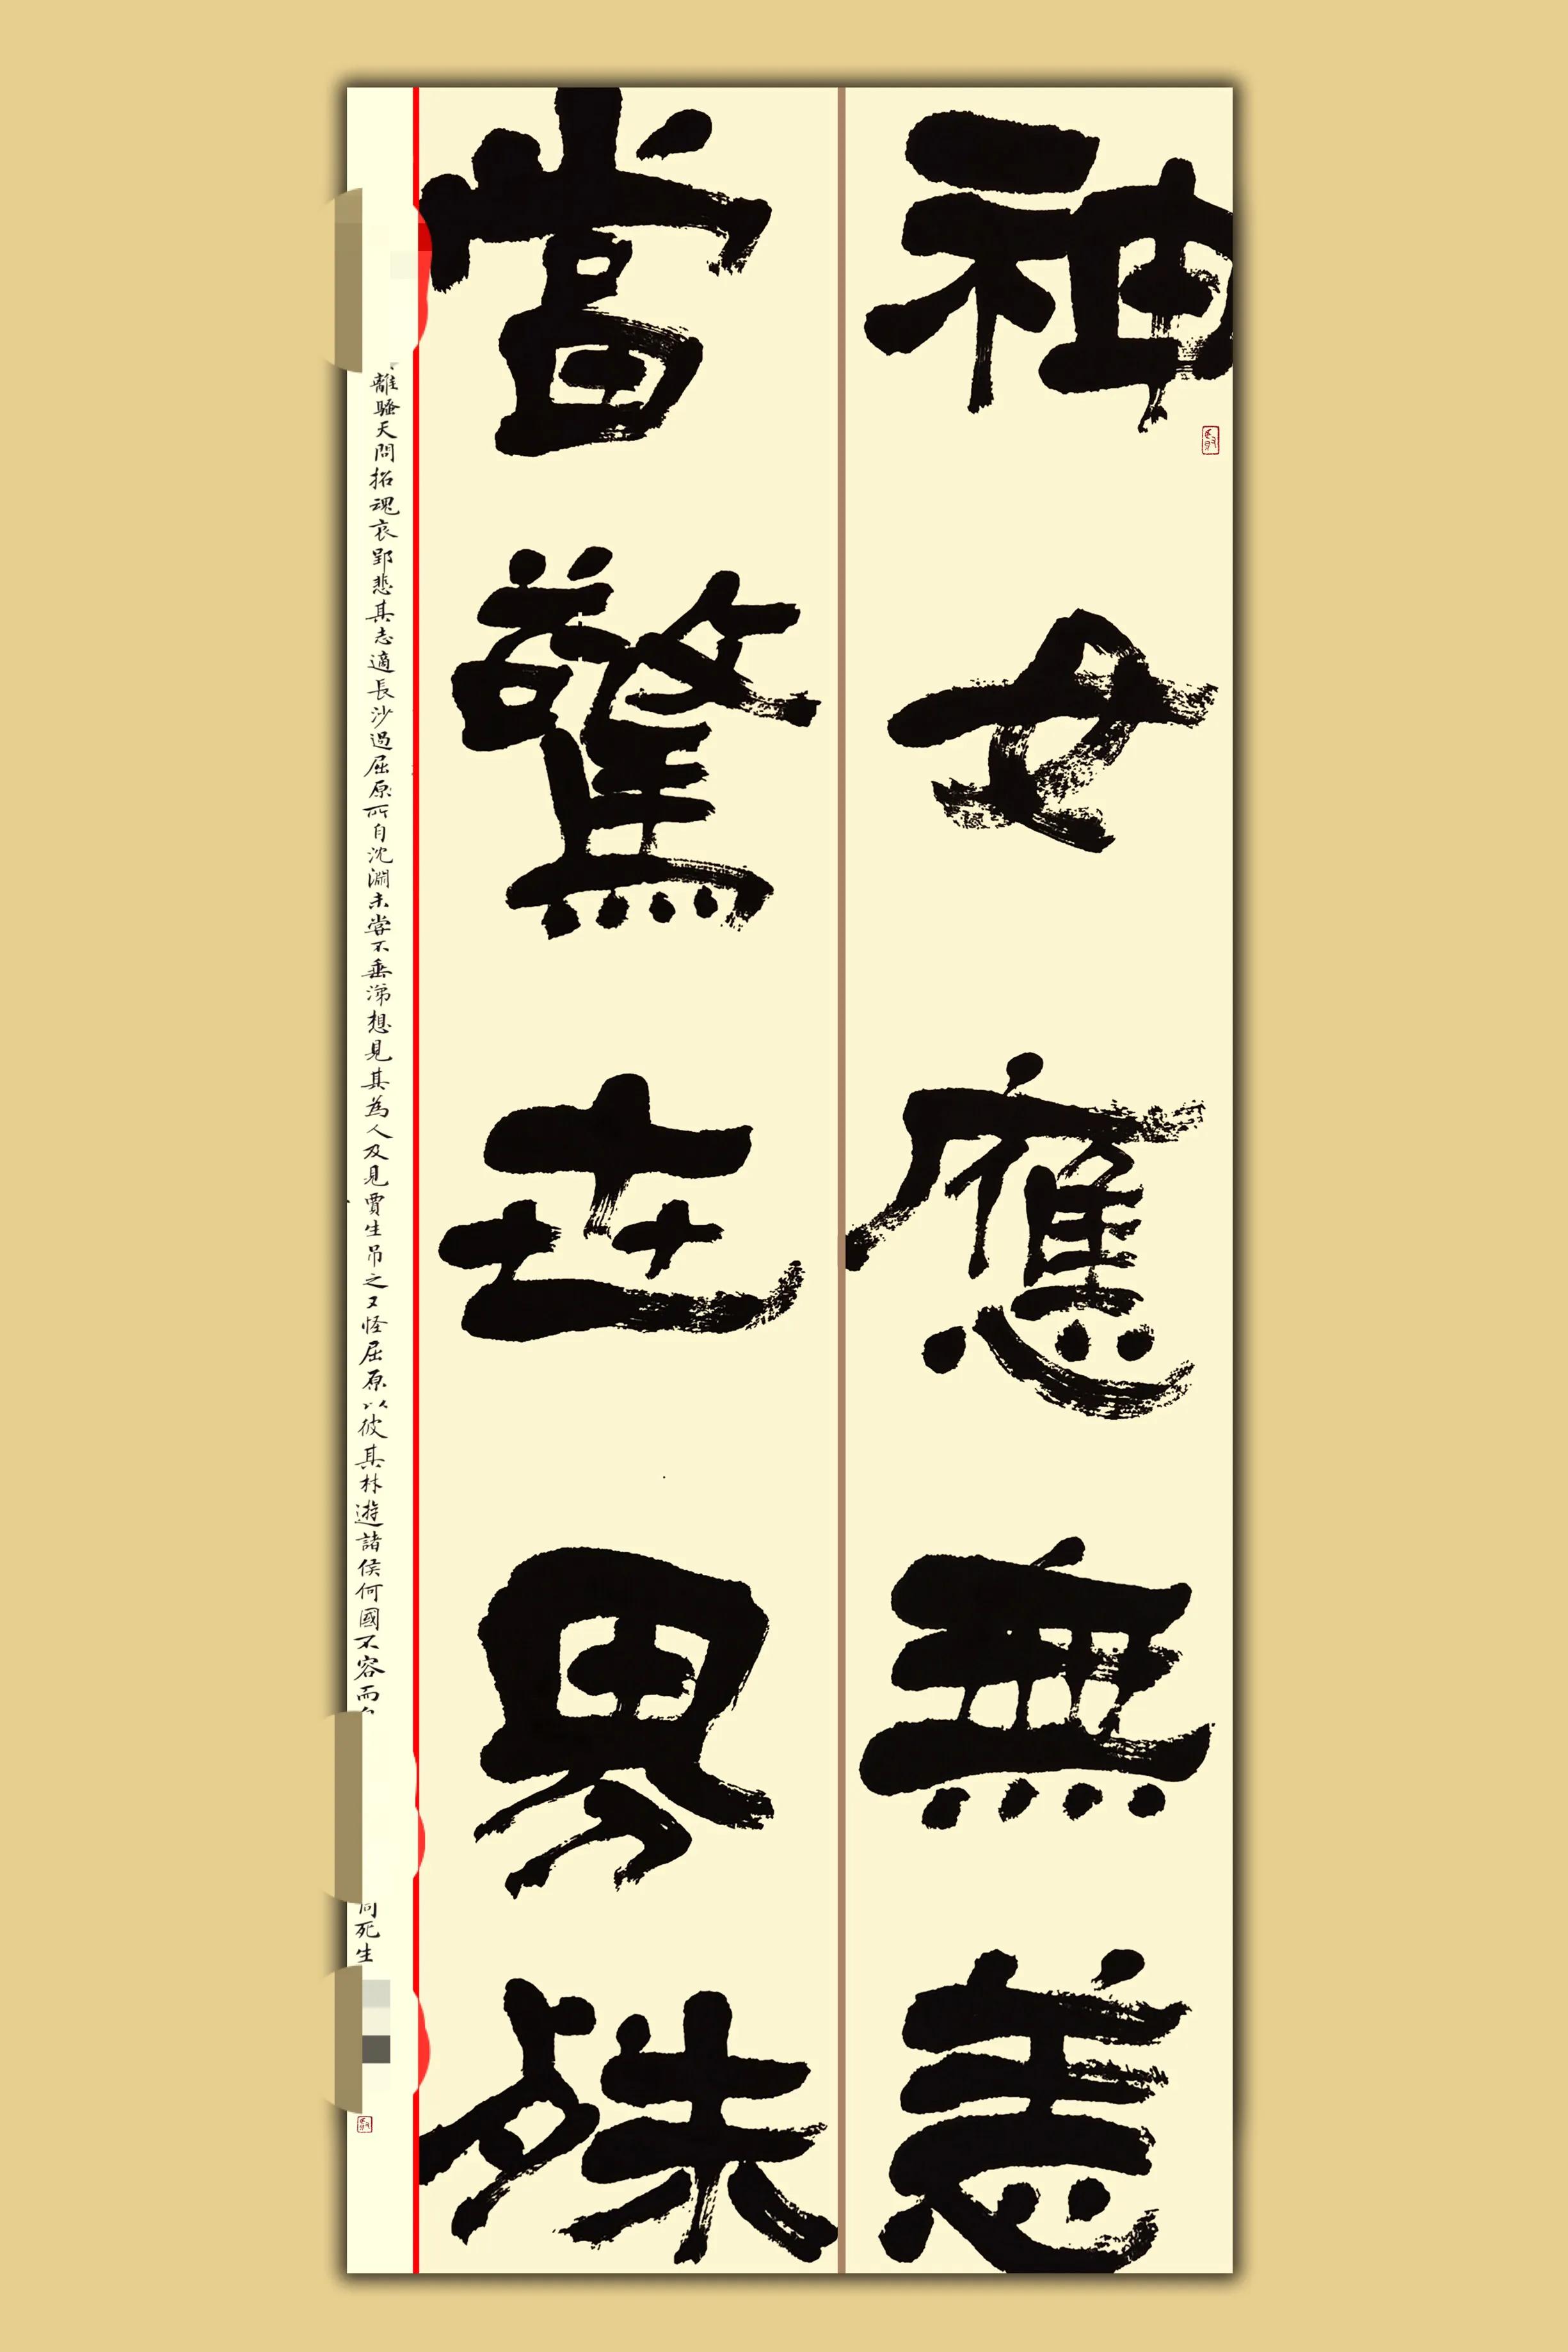 神女應無恙
當驚世界殊
離騷天問招魂哀郢悲其志適長沙過屈原所自沈淵未嘗不垂涕想見其為人及見賈生吊之又怪屈原以彼其材遊諸侯何國不容而
同死生